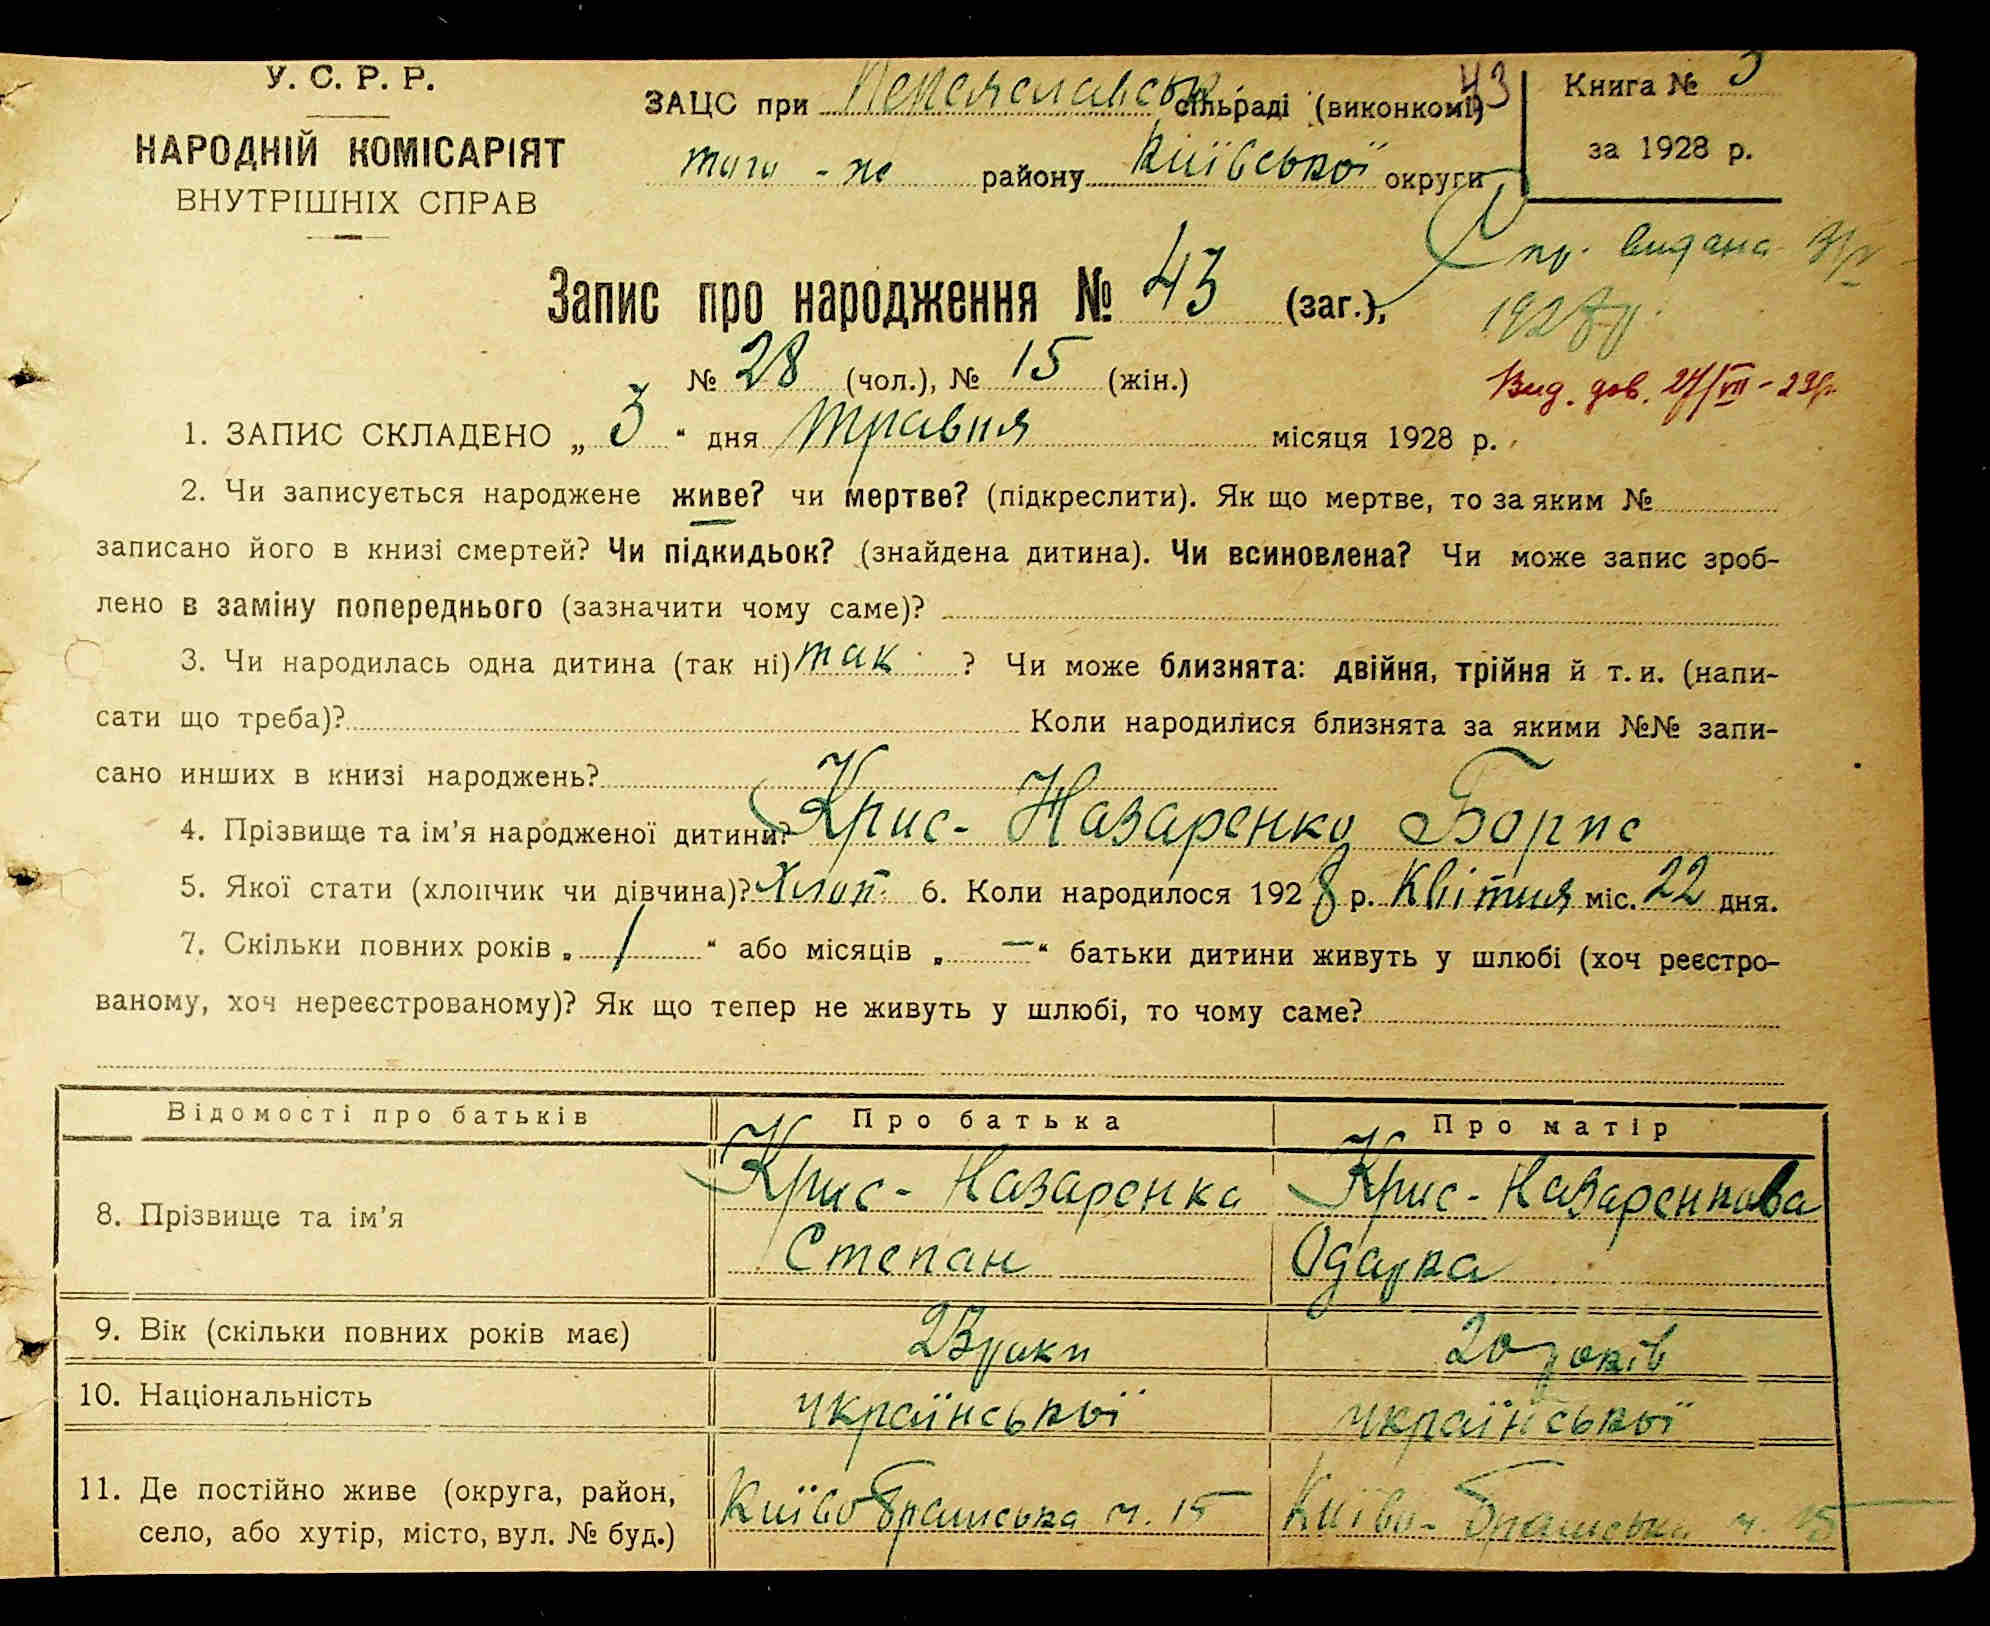 У. С. Р. Р.
НАРОДНІЙ КОМІСАРІЯТ
ВНУТРІШНІХ СПРАВ
ЗАЦС при Переяславськ. сільраді (виконкомі) 43
того - же району Київської округи
Книга № 3
за 1928 р.
Запис про народження № 43 (заг.),
пр. видана
1928 р.
№ 28 (чол.), № 15 (жін.)
Вид. дов. 27/VII - 29р.
1. ЗАПИС СКЛАДЕНО „ 3 “ дня травня місяця 1928 р.
2. Чи записується народжене живе? чи мертве? (підкреслити). Як що мертве, то за яким №
записано його в книзі смертей? Чи підкидьок? (знайдена дитина). Чи всиновлена? Чи може запис зроб-
лено в заміну попереднього (зазначити чому саме)?
3. Чи народилась одна дитина (так ні) так ? Чи може близнята: двійня, трійня й т. и. (напи-
сати що треба)? Коли народилися близнята за якими №№ запи-
сано инших в книзі народжень?
4. Прізвище та ім'я народженої дитини? Крис- Назаренко Борис
5. Якої стати (хлопчик чи дівчина)? Хлоп. 6. Коли народилося 1928 р. Квітня міс. 22 дня.
7. Скільки повних років „ 1 “ або місяців „ — “ батьки дитини живуть у шлюбі (хоч реєстро-
ваному, хоч нереєстрованому)? Як що тепер не живуть у шлюбі, то чому саме?
Відомості про батьків Про батька Про матір
8. Прізвище та ім'я Крис- Назаренко Крис- Назаренкова
Степан Одарка
9. Вік (скільки повних років має) 23 роки 20 років
10. Національність української української
11. Де постійно живе (округа, район,
село, або хутір, місто, вул. № буд.)
Києво ч. 15 Києво- ч. 15